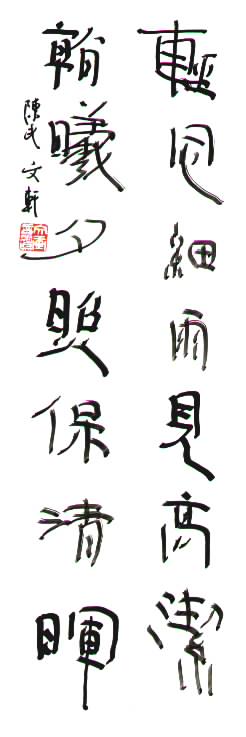 輕風細雨見高潔
朝曦夕照保清暉
陳氏文軒